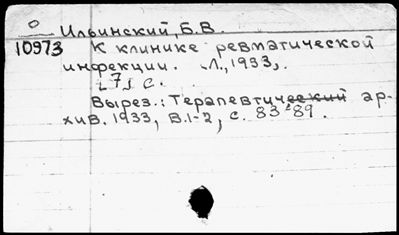 Ильинский, Б.В.
10973 К клинике ревматической
инфекции. Л., 1933,.
[7] с.
Вырез.: Терапевтический ар-
хив. 1933, В.1-2, с. 83-89.